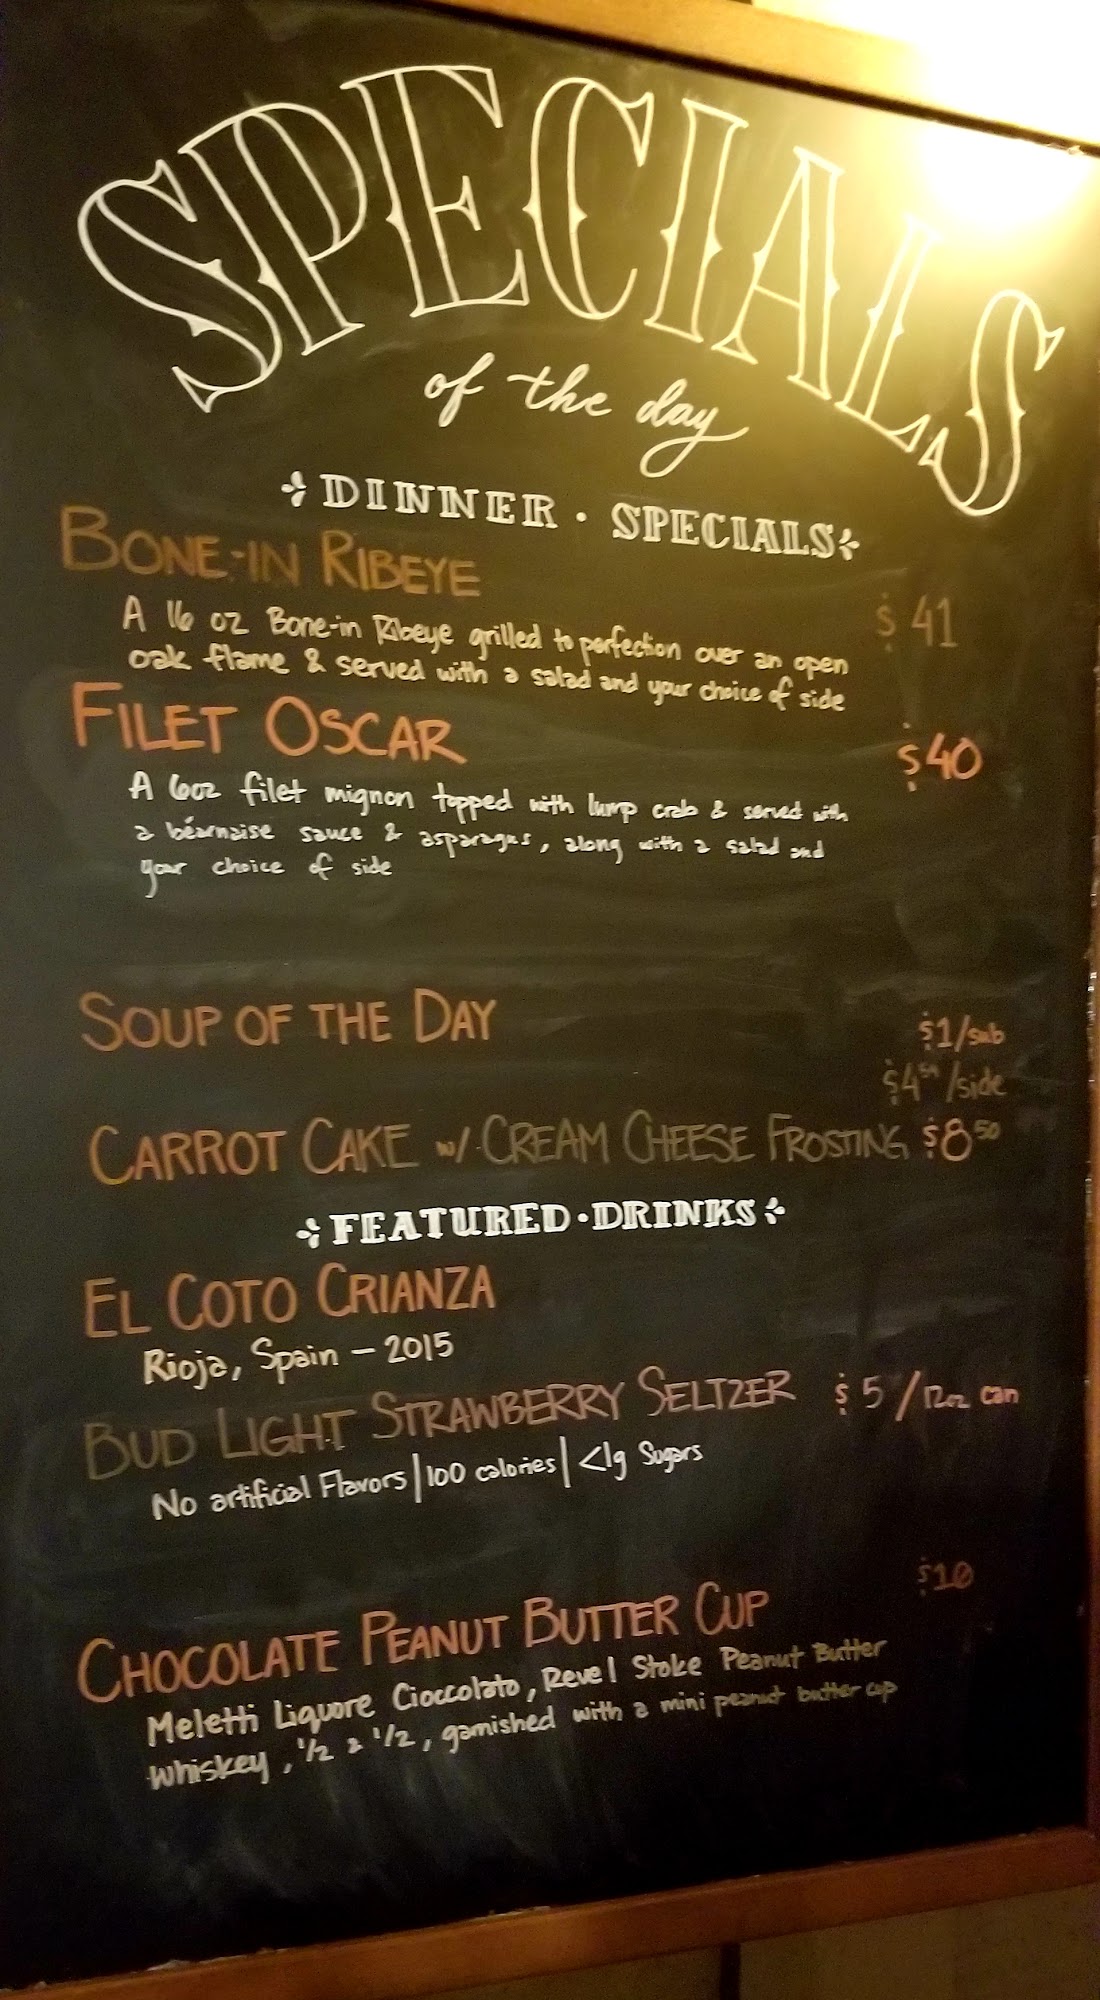 SPECIALS
of the day
DINNER · SPECIALS
BONE-IN RIBEYE $41
A 16 oz Bone-in Ribeye grilled to perfection over an open
oak flame & served with a salad and your choice of side
FILET OSCAR $40
A 6oz filet mignon topped with lump crab & served with
a béarnaise sauce & asparagus, along with a salad and
your choice of side
SOUP OF THE DAY $1/sub
/side
CARROT CAKE w/ CREAM CHEESE FROSTING $8 50
FEATURED · DRINKS
EL COTO CRIANZA
Rioja, Spain – 2015
BUD LIGHT STRAWBERRY SELTZER $5/12oz can
No artificial Flavors | 100 calories | <1g Sugars
CHOCOLATE PEANUT BUTTER CUP $10
Meletti Liquore Cioccolato, Revel Stoke Peanut Butter
Whiskey, 1/2 & 1/2, garnished with a mini peanut butter cup